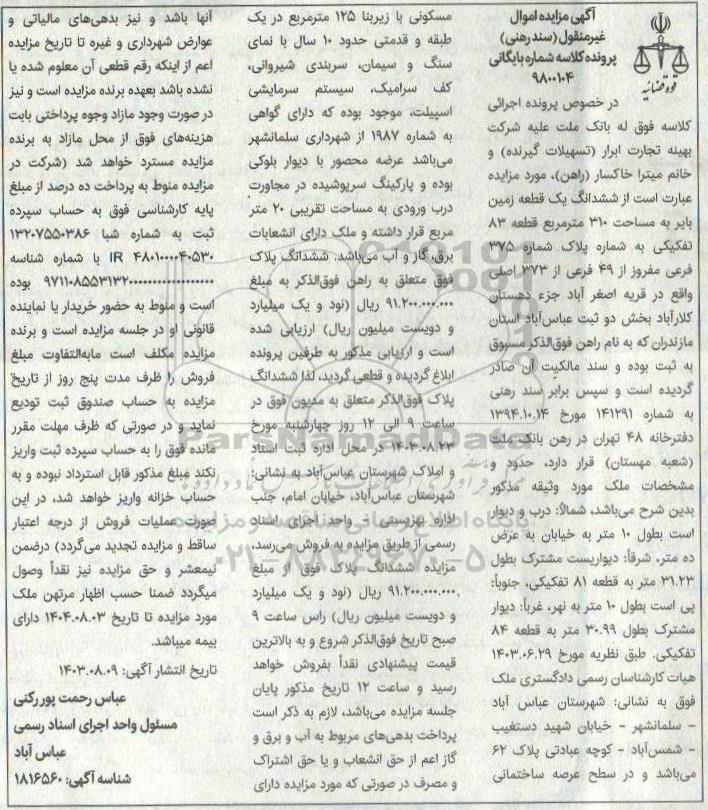 قوه قضائیه
آگهی مزایده اموال
غیرمنقول (سند رهنی)
پرونده کلاسه شماره بایگانی
۹۸۰۰۱۰۴
در خصوص پرونده اجرائی
کلاسه فوق له بانک ملت علیه شرکت
بهینه تجارت ابرار (تسهیلات گیرنده) و
خانم میترا خاکسار (راهن)، مورد مزایده
عبارت است از ششدانگ یک قطعه زمین
بایر به مساحت ۳۱۰ مترمربع قطعه ۸۳
تفکیکی به شماره پلاک شماره ۳۷۵
فرعی مفروز از ۴۹ فرعی از ۳۷۳ اصلی
واقع در قریه اصغر آباد جزء دهستان
کلارآباد بخش دو ثبت عباس‌آباد استان
مازندران که به نام راهن فوق‌الذکر مسبوق
به ثبت بوده و سند مالکیت آن صادر
گردیده است و سپس برابر سند رهنی
به شماره ۱۴۱۲۹۱ مورخ ۱۳۹۴.۱۰.۱۴
دفترخانه ۴۸ تهران در رهن بانک ملت
(شعبه مهستان) قرار دارد، حدود و
مشخصات ملک مورد وثیقه مذکور
بدین شرح می‌باشد، شمالاً: درب و دیوار
است بطول ۱۰ متر به خیابان به عرض
ده متر، شرقاً: دیواریست مشترک بطول
۳۱.۲۳ متر به قطعه ۸۱ تفکیکی، جنوباً:
پی است بطول ۱۰ متر به نهر، غرباً: دیوار
مشترک بطول ۳۰.۹۹ متر به قطعه ۸۴
تفکیکی. طبق نظریه مورخ ۱۴۰۳.۰۶.۲۹
هیات کارشناسان رسمی دادگستری ملک
فوق به نشانی: شهرستان عباس آباد
- سلمانشهر - خیابان شهید دستغیب
- شمس‌آباد - کوچه عبادتی پلاک ۶۲
می‌باشد و در سطح عرصه ساختمانی
مسکونی با زیربنا ۱۲۵ مترمربع در یک
طبقه و قدمتی حدود ۱۰ سال با نمای
سنگ و سیمان، سربندی شیروانی،
کف سرامیک، سیستم سرمایشی
اسپیلت، موجود بوده که دارای گواهی
به شماره ۱۹۸۷ از شهرداری سلمانشهر
می‌باشد عرضه محصور با دیوار بلوکی
بوده و پارکینگ سرپوشیده در مجاورت
درب ورودی به مساحت تقریبی ۲۰ متر
مربع قرار داشته و ملک دارای انشعابات
برق، گاز و آب می‌باشد. ششدانگ پلاک
فوق متعلق به راهن فوق‌الذکر به مبلغ
۹۱.۲۰۰.۰۰۰.۰۰۰ ریال (نود و یک میلیارد
و دویست میلیون ریال) ارزیابی شده
است و ارزیابی مذکور به طرفین پرونده
ابلاغ گردیده و قطعی گردید، لذا ششدانگ
پلاک فوق‌الذکر متعلق به مدیون فوق در
ساعت ۹ الی ۱۲ روز چهارشنبه مورخ
۱۴۰۳.۰۸.۲۳ در محل اداره ثبت اسناد
و املاک شهرستان عباس‌آباد به نشانی:
شهرستان عباس‌آباد، خیابان امام، جنب
اداره بهزیستی - واحد اجرای اسناد
رسمی از طریق مزایده به فروش می‌رسد،
مزایده ششدانگ پلاک فوق از مبلغ
۹۱.۲۰۰.۰۰۰.۰۰۰ ریال (نود و یک میلیارد
و دویست میلیون ریال) راس ساعت ۹
صبح تاریخ فوق‌الذکر شروع و به بالاترین
قیمت پیشنهادی نقداً بفروش خواهد
رسید و ساعت ۱۲ تاریخ مذکور پایان
جلسه مزایده می‌باشد، لازم به ذکر است
پرداخت بدهی‌های مربوط به آب و برق و
گاز اعم از حق انشعاب و یا حق اشتراک
و مصرف در صورتی که مورد مزایده دارای
آنها باشد و نیز بدهی‌های مالیاتی و
عوارض شهرداری و غیره تا تاریخ مزایده
اعم از اینکه رقم قطعی آن معلوم شده یا
نشده باشد بعهده برنده مزایده است و نیز
در صورت وجود مازاد وجوه پرداختی بابت
هزینه‌های فوق از محل مازاد به برنده
مزایده مسترد خواهد شد (شرکت در
مزایده منوط به پرداخت ده درصد از مبلغ
پایه کارشناسی فوق به حساب سپرده
ثبت به شماره شبا ۱۳۲۰۷۵۵۰۳۸۶
IR ۴۸۰۱۰۰۰۰۴۰۵۳۰ با شماره شناسه
بوده
است و منوط به حضور خریدار یا نماینده
قانونی او در جلسه مزایده است و برنده
مزایده مکلف است مابه‌التفاوت مبلغ
فروش را ظرف مدت پنج روز از تاریخ
مزایده به حساب صندوق ثبت تودیع
نماید و در صورتی که ظرف مهلت مقرر
مانده فوق را به حساب سپرده ثبت واریز
نکند مبلغ مذکور قابل استرداد نبوده و به
حساب خزانه واریز خواهد شد، در این
صورت عملیات فروش از درجه اعتبار
ساقط و مزایده تجدید می‌گردد) درضمن
نیمعشر و حق مزایده نیز نقداً وصول
میگردد ضمنا حسب اظهار مرتهن ملک
مورد مزایده تا تاریخ ۱۴۰۴.۰۸.۰۳ دارای
بیمه میباشد.
تاریخ انتشار آگهی: ۱۴۰۳.۰۸.۰۹
عباس رحمت پور رکنی
مسئول واحد اجرای اسناد رسمی
عباس آباد
شناسه آگهی: ۱۸۱۶۵۶۰
ParsNamadData